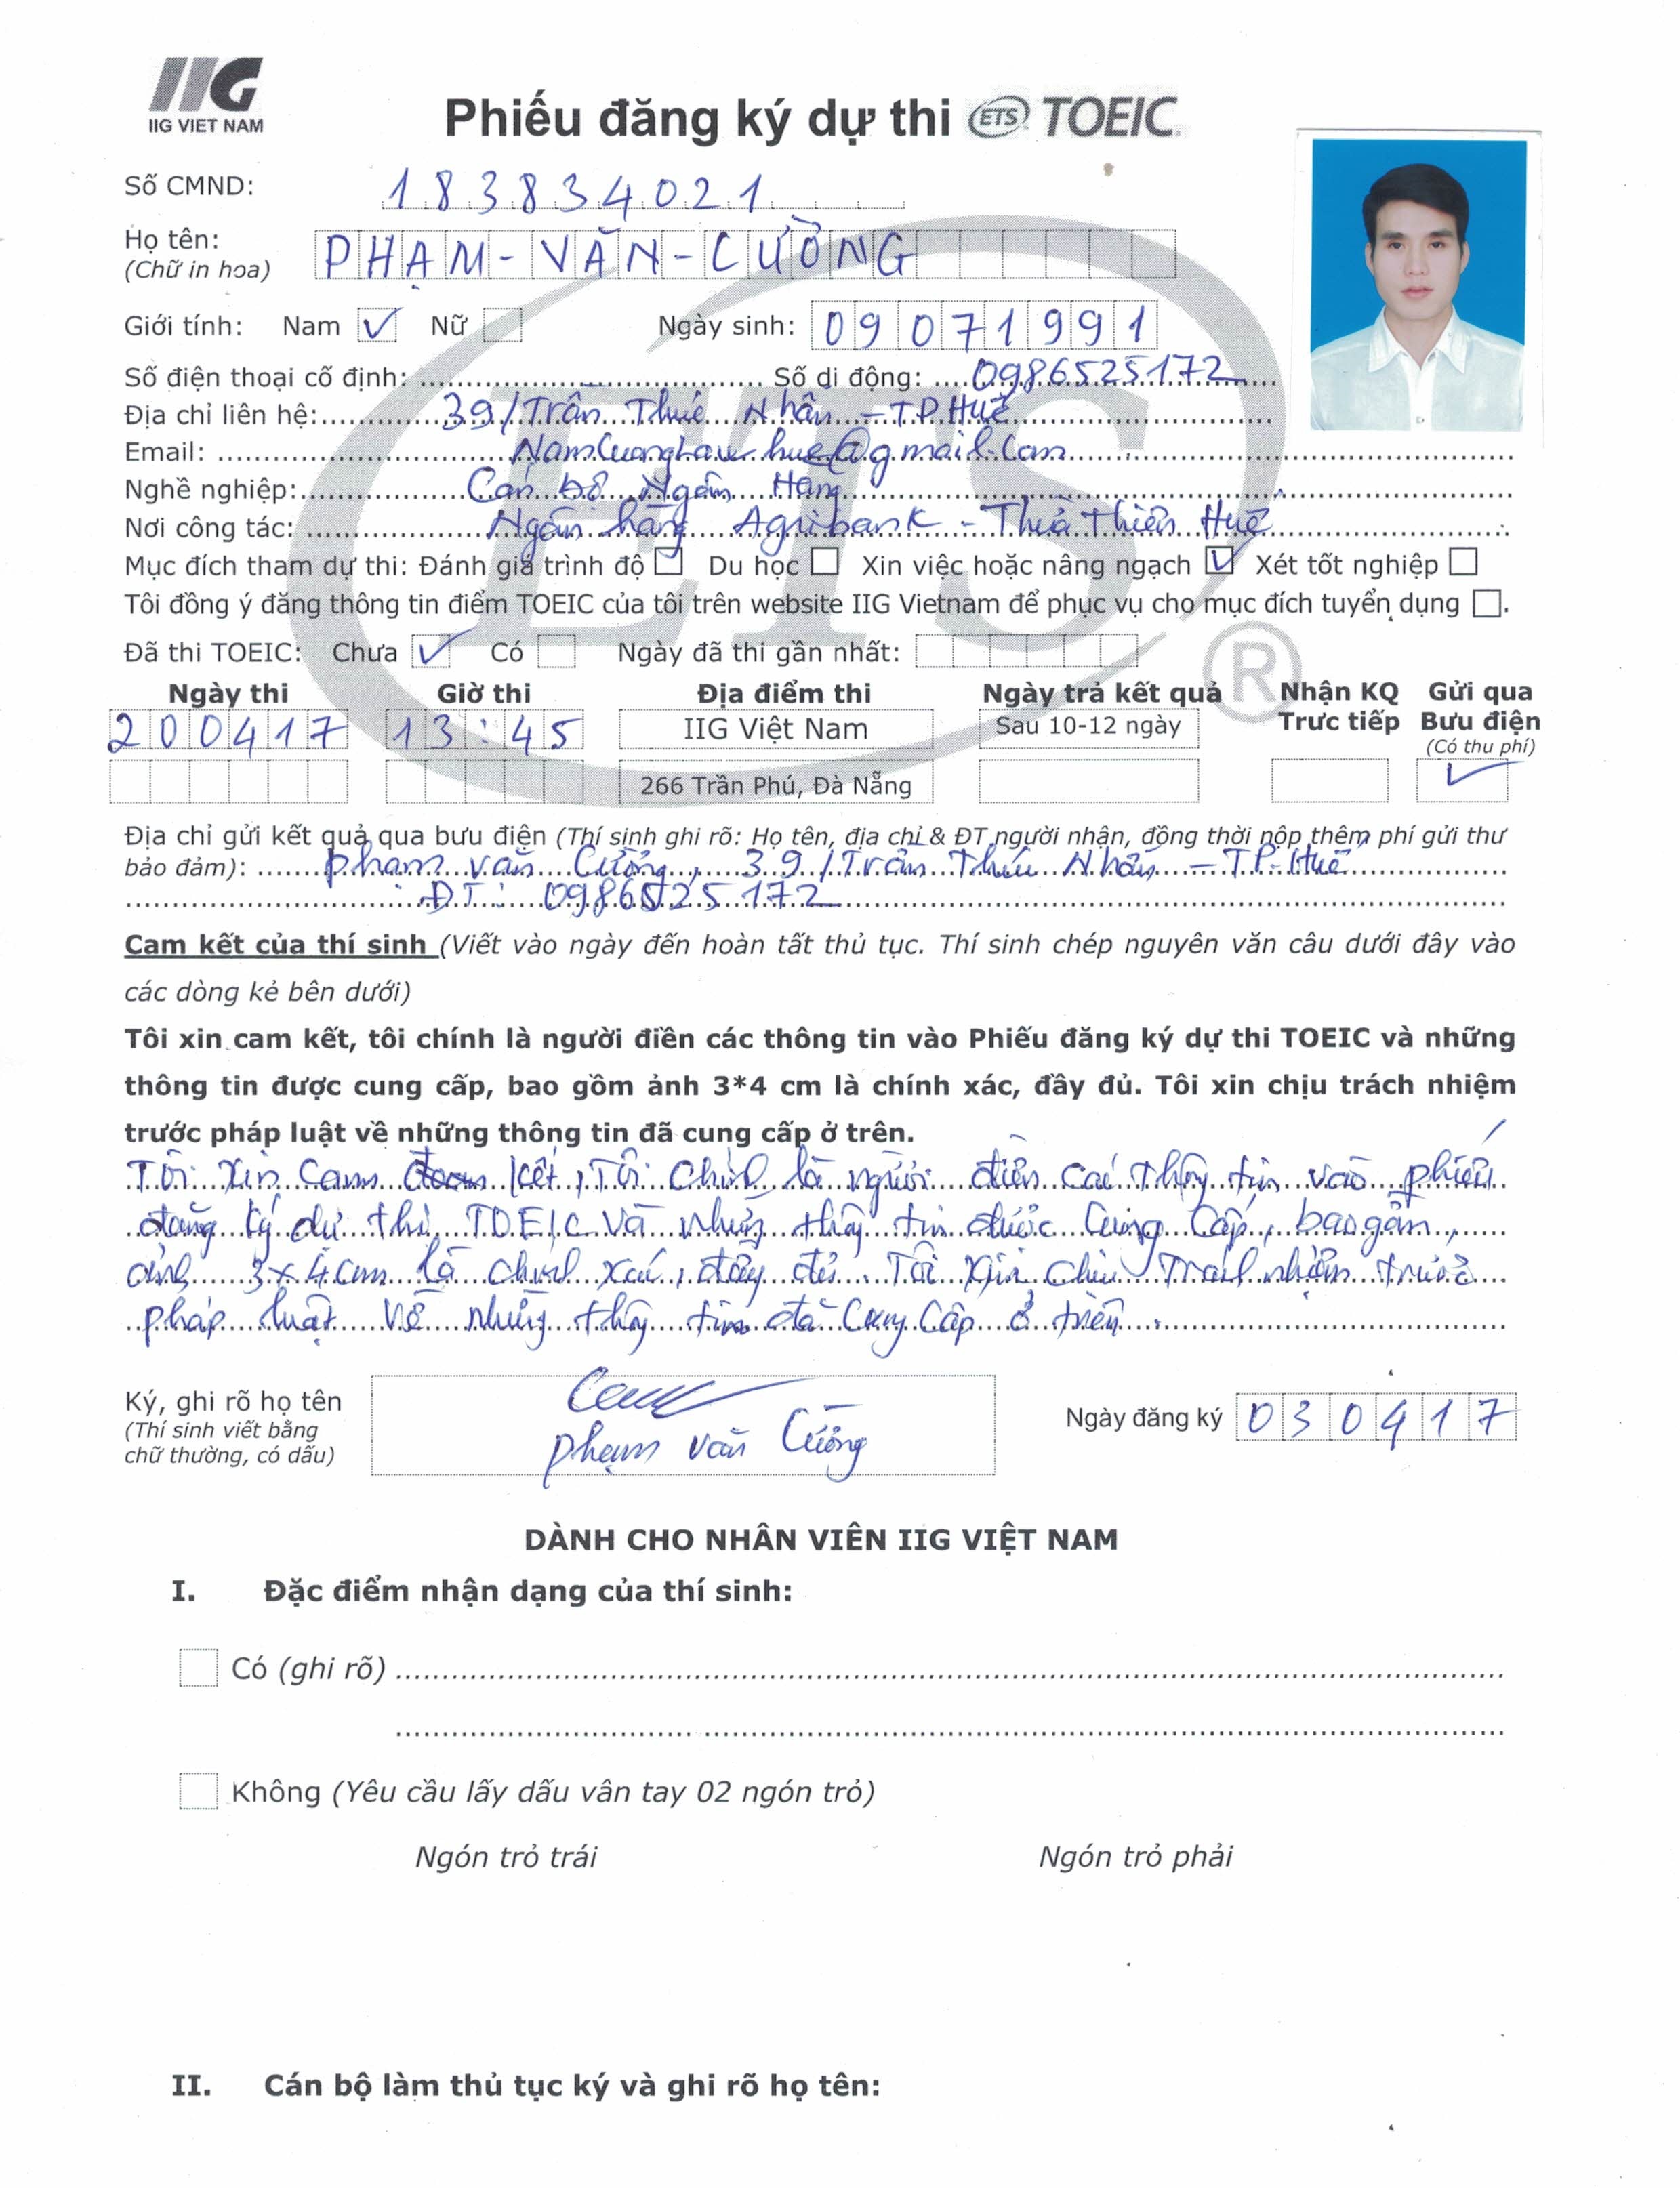 IIG
IIG VIET NAM
Phiếu đăng ký dự thi ETS TOEIC
Số CMND: 183834021
Họ tên: PHẠM-VĂN-CƯỜNG
(Chữ in hoa)
Giới tính: Nam ✓ Nữ Ngày sinh: 09071991
Số điện thoại cố định: Số di động: 0986525172
Địa chỉ liên hệ: 39/Trần Thúc Nhẫn - TP.Huế
Email: NamCuongLawhue@gmail.com
Nghề nghiệp: Cán bộ Ngân Hàng
Nơi công tác: Ngân hàng Agribank - Thừa Thiên Huế
Mục đích tham dự thi: Đánh giá trình độ Du học Xin việc hoặc nâng ngạch ✓ Xét tốt nghiệp
Tôi đồng ý đăng thông tin điểm TOEIC của tôi trên website IIG Vietnam để phục vụ cho mục đích tuyển dụng .
Đã thi TOEIC: Chưa ✓ Có Ngày đã thi gần nhất:
Ngày thi Giờ thi Địa điểm thi Ngày trả kết quả Nhận KQ Trực tiếp Gửi qua Bưu điện
(Có thu phí)
200417 13:45 IIG Việt Nam Sau 10-12 ngày
266 Trần Phú, Đà Nẵng ✓
Địa chỉ gửi kết quả qua bưu điện (Thí sinh ghi rõ: Họ tên, địa chỉ & ĐT người nhận, đồng thời nộp thêm phí gửi thư
bảo đảm): Phạm Văn Cường, 39/Trần Thúc Nhẫn - TP.Huế
ĐT: 0986525172
Cam kết của thí sinh (Viết vào ngày đến hoàn tất thủ tục. Thí sinh chép nguyên văn câu dưới đây vào
các dòng kẻ bên dưới)
Tôi xin cam kết, tôi chính là người điền các thông tin vào Phiếu đăng ký dự thi TOEIC và những
thông tin được cung cấp, bao gồm ảnh 3*4 cm là chính xác, đầy đủ. Tôi xin chịu trách nhiệm
trước pháp luật về những thông tin đã cung cấp ở trên.
Tôi xin cam kết, Tôi chính là người điền các thông tin vào phiếu
đăng ký dự thi TOEIC và những thông tin được cung cấp, bao gồm,
ảnh 3x4cm là chính xác, đầy đủ. Tôi xin chịu trách nhiệm trước
pháp luật về những thông tin đã cung cấp ở trên.
Ký, ghi rõ họ tên
(Thí sinh viết bằng
chữ thường, có dấu)
Phạm Văn Cường
Ngày đăng ký 030417
DÀNH CHO NHÂN VIÊN IIG VIỆT NAM
I. Đặc điểm nhận dạng của thí sinh:
Có (ghi rõ)
Không (Yêu cầu lấy dấu vân tay 02 ngón trỏ)
Ngón trỏ trái Ngón trỏ phải
II. Cán bộ làm thủ tục ký và ghi rõ họ tên:
ETS ®